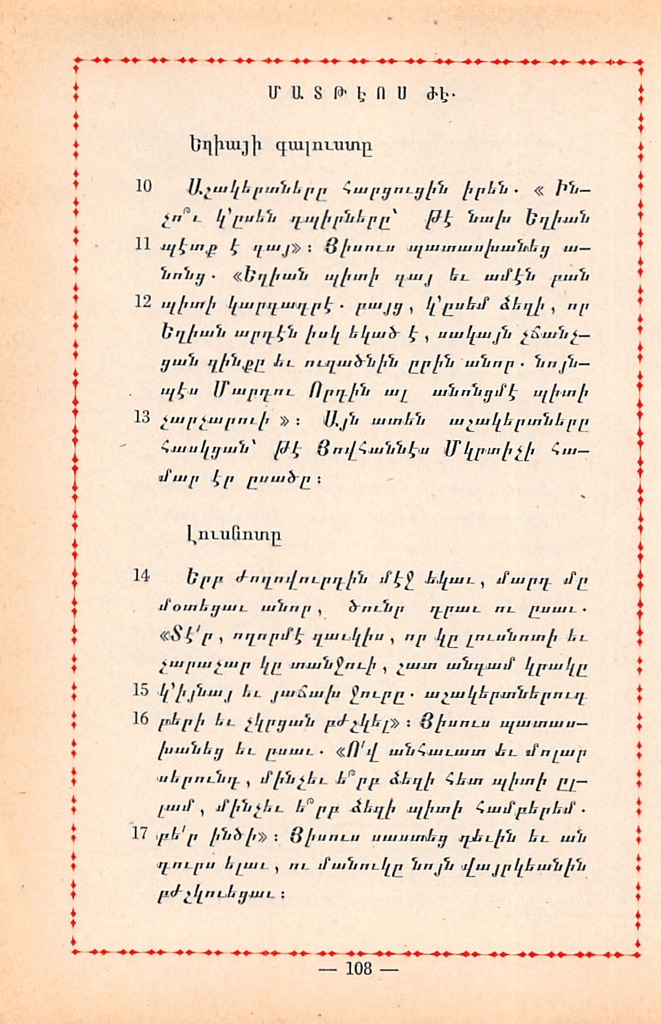 ՄԱՏԹԷՈՍ ԺԷ.
Եղիայի գալուստը
10 Աշակերտները հարցուցին իրեն. « Ին–
չո՞ւ կ՚ըսեն դպիրները՝ թէ նախ Եղիան
11 պէտք է գայ»: Յիսուս պատասխանեց ա–
նոնց. «Եղիան պիտի գայ եւ ամէն բան
12 պիտի կարգադրէ. բայց, կ՚ըսեմ ձեզի, որ
Եղիան արդէն իսկ եկած է, սակայն չճանչ–
ցան զինքը եւ ուզածնին ըրին անոր. նոյն–
պէս Մարդու Որդին ալ անոնցմէ պիտի
13 չարչարուի »: Այն ատեն աշակերտները
հասկցան՝ թէ Յովհաննէս Մկրտիչի հա–
մար էր ըսածը:
Լուսնոտը
14 Երբ ժողովուրդին մէջ եկաւ, մարդ մը
մօտեցաւ անոր, ծունր դրաւ ու ըսաւ.
«Տէ՛ր, ողորմէ զաւկիս, որ կը լուսնոտի եւ
չարաչար կը տանջուի, շատ անգամ կրակը
15 կ՚իյնայ եւ յաճախ ջուրը. աշակերտներուդ
16 բերի եւ չկրցան բժշկել»: Յիսուս պատաս–
խանեց եւ ըսաւ. «Ո՛վ անհաւատ եւ մոլար
սերունդ, մինչեւ ե՞րբ ձեզի հետ պիտի ըլ–
լամ, մինչեւ ե՞րբ ձեզի պիտի համբերեմ.
17 բե՛ր ինծի»: Յիսուս սաստեց դեւին եւ ան
դուրս ելաւ, ու մանուկը նոյն վայրկեանին
բժշկուեցաւ:
— 108 —